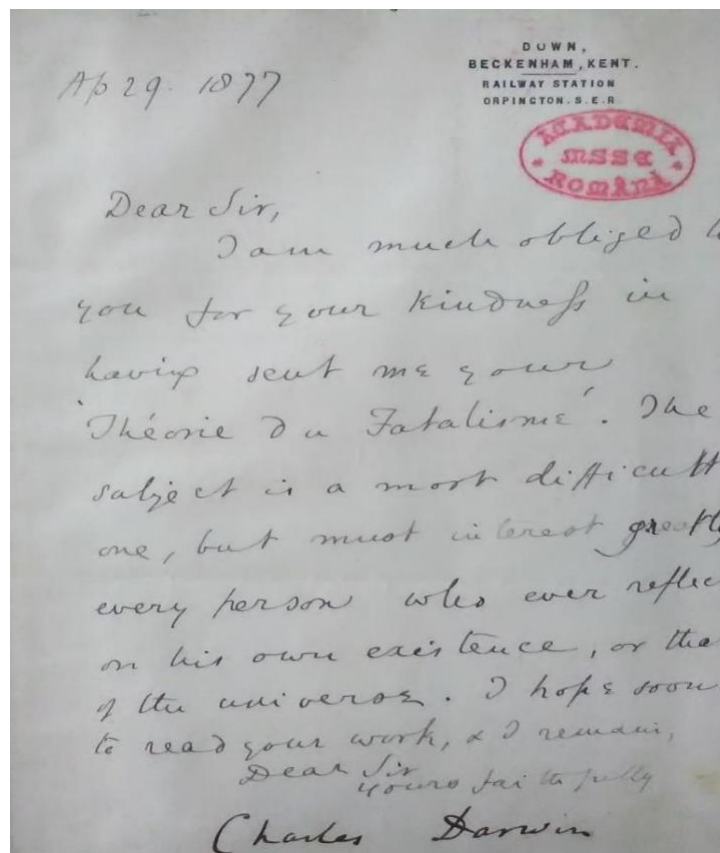 DOWN,
BECKENHAM, KENT.
RAILWAY STATION
ORPINGTON. S.E.R.
Ap 29. 1877
ACADEMIA
MSSE
ROMÂNĂ
Dear Sir,
I am much obliged t
you for your kindness in
having sent me your
'Théorie du Fatalisme'. The
subject is a most difficult
one, but must interest greatly
every person who ever reflec
on his own existence, or tha
of the universe. I hope soon
to read your work, & I remain,
Dear Sir
yours faithfully
Charles Darwin